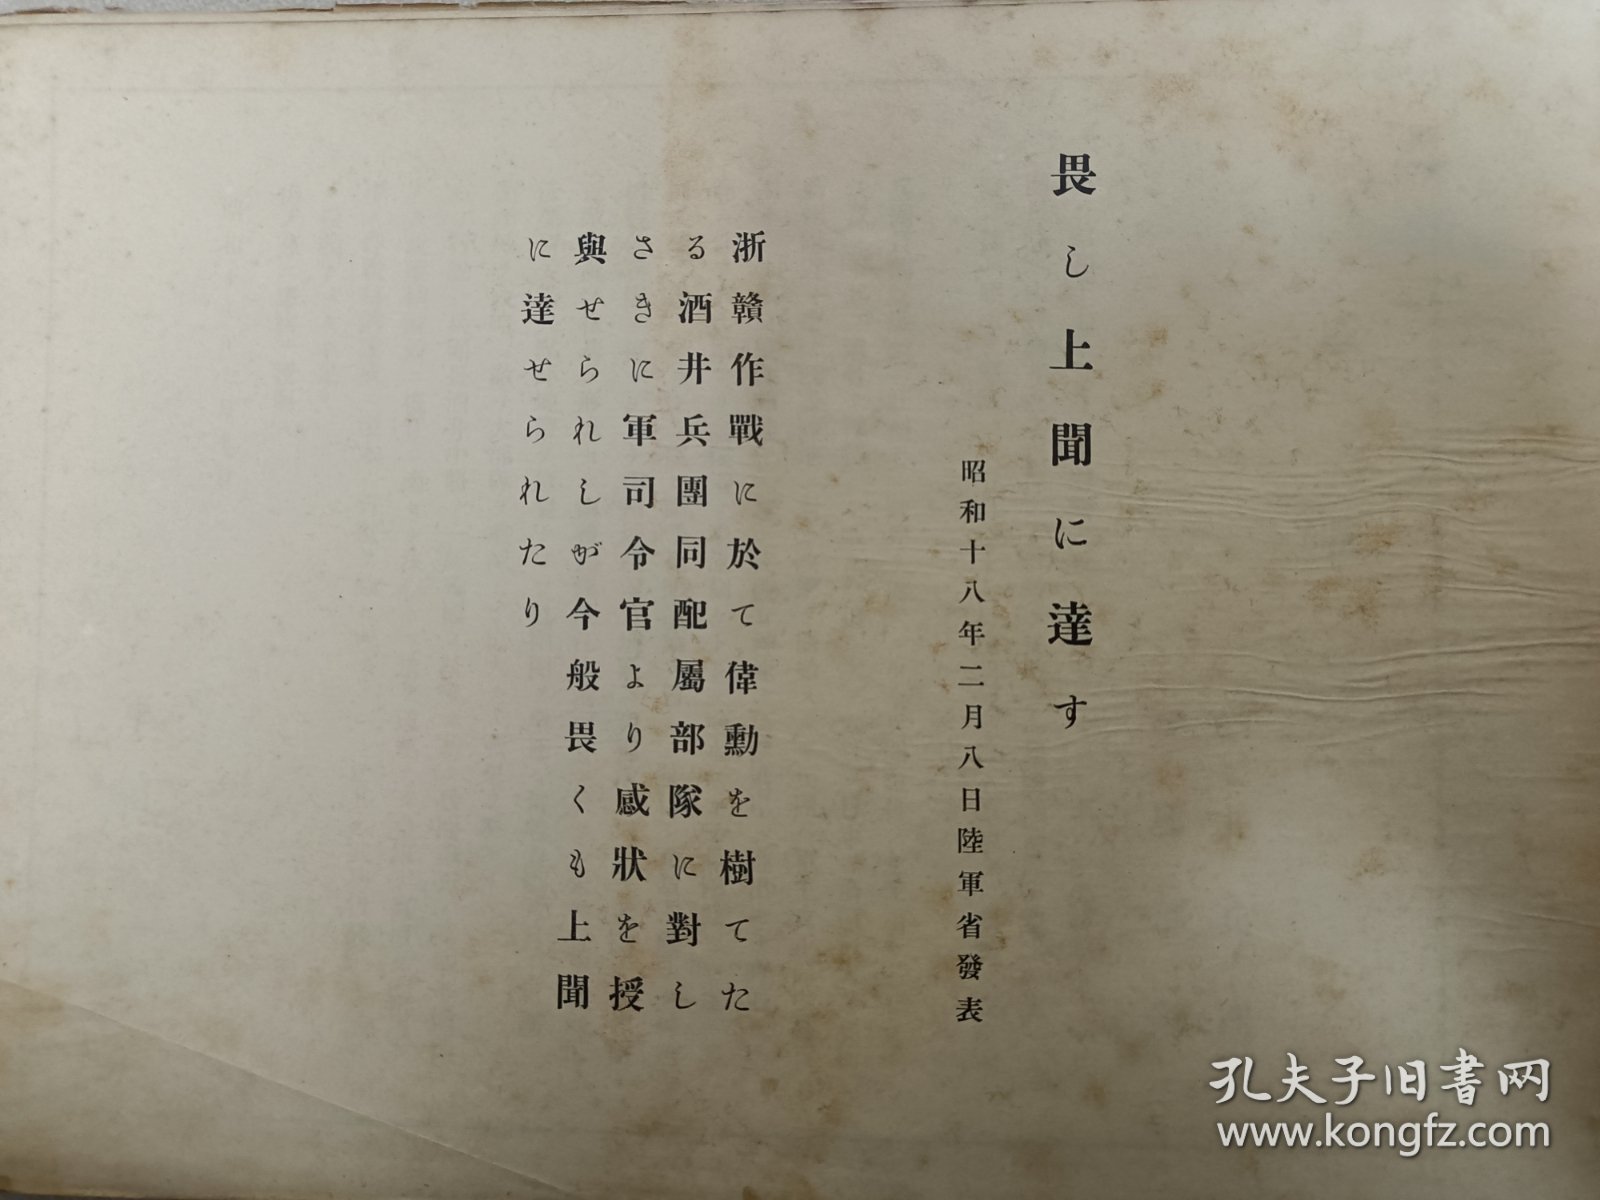 畏し上聞に達す
昭和十八年二月八日陸軍省發表
浙贛作戰に於て偉勳を樹てた
る酒井兵團同配屬部隊に對し
さきに軍司令官より感狀を授
與せられしが今般畏くも上聞
に達せられたり
孔夫子旧書网
www.kongfz.com